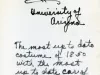 University of
Arizona
The most up to date
costume of 1885
with the most
up to date cars